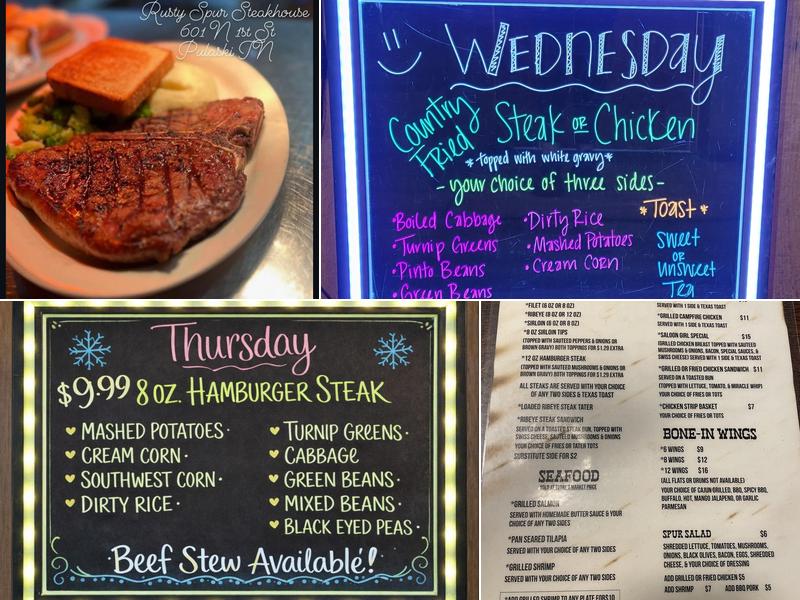 Rusty Spur Steakhouse
601 N 1st St
Pulaski TN
WEDNESDAY
Country Fried Steak or Chicken
*topped with white gravy*
-your choice of three sides-
•Boiled Cabbage
•Turnip Greens
•Pinto Beans
•Green Beans
•Dirty Rice
•Mashed Potatoes
•Cream Corn
*Toast*
Sweet
or
Unsweet
Tea
Thursday
$9.99 8 OZ. HAMBURGER STEAK
MASHED POTATOES·
CREAM CORN·
SOUTHWEST CORN·
DIRTY RICE·
TURNIP GREENS·
CABBAGE
GREEN BEANS·
MIXED BEANS·
BLACK EYED PEAS·
Beef Stew Available!
*FILET (6 OZ OR 8 OZ)
*RIBEYE (8 OZ OR 12 OZ)
*SIRLOIN (6 OZ OR 8 OZ)
*8 OZ SIRLOIN TIPS
(TOPPED WITH SAUTEED PEPPERS & ONIONS OR
BROWN GRAVY) BOTH TOPPINGS FOR $1.29 EXTRA
*12 OZ HAMBURGER STEAK
(TOPPED WITH SAUTEED MUSHROOMS & ONIONS OR
BROWN GRAVY) BOTH TOPPINGS FOR $1.29 EXTRA
ALL STEAKS ARE SERVED WITH YOUR CHOICE
OF ANY TWO SIDES & TEXAS TOAST
*LOADED RIBEYE STEAK TATER
*RIBEYE STEAK SANDWICH
SERVED ON A TOASTED STEAK BUN, TOPPED WITH
SWISS CHEESE, SAUTEED MUSHROOMS & ONIONS
YOUR CHOICE OF FRIES OR TATER TOTS
SUBSTITUTE SIDE FOR $2
SEAFOOD
SOLD AT TODAY'S MARKET PRICE
*GRILLED SALMON
SERVED WITH HOMEMADE BUTTER SAUCE & YOUR
CHOICE OF ANY TWO SIDES
*PAN SEARED TILAPIA
SERVED WITH YOUR CHOICE OF ANY TWO SIDES
*GRILLED SHRIMP
SERVED WITH YOUR CHOICE OF ANY TWO SIDES
*ADD GRILLED SHRIMP TO ANY PLATE FOR $10
SERVED WITH 1 SIDE & TEXAS TOAST
*GRILLED CAMPFIRE CHICKEN $11
SERVED WITH 1 SIDE & TEXAS TOAST
*SALOON GIRL SPECIAL $15
GRILLED CHICKEN BREAST TOPPED WITH SAUTEED
MUSHROOMS & ONIONS, BACON, SPECIAL SAUCES, &
SWISS CHEESE) SERVED WITH 1 SIDE & TEXAS TOAST
*GRILLED OR FRIED CHICKEN SANDWICH $11
SERVED ON A TOASTED BUN
(TOPPED WITH LETTUCE, TOMATO, & MIRACLE WHIP)
YOUR CHOICE OF FRIES OR TOTS
*CHICKEN STRIP BASKET $7
YOUR CHOICE OF FRIES OR TOTS
BONE-IN WINGS
*6 WINGS $9
*8 WINGS $12
*12 WINGS $16
(ALL FLATS OR DRUMS NOT AVAILABLE)
YOUR CHOICE OF CAJUN GRILLED, BBQ, SPICY BBQ,
BUFFALO, HOT, MANGO JALAPENO, OR GARLIC
PARMESAN
SPUR SALAD $6
SHREDDED LETTUCE, TOMATOES, MUSHROOMS,
ONIONS, BLACK OLIVES, BACON, EGGS, SHREDDED
CHEESE, & YOUR CHOICE OF DRESSING
ADD GRILLED OR FRIED CHICKEN $5
ADD SHRIMP $7 ADD BBQ PORK $5